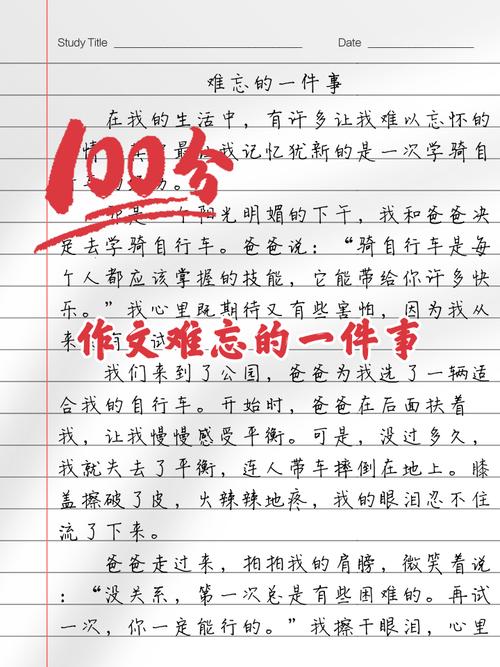 Study Title
Date
难忘的一件事
在我的生活中，有许多让我难以忘怀的
情
我记忆犹新的是一次学骑自
100分
。
阳光明媚的下午，我和爸爸决
定去学骑自行车。爸爸说：“骑自行车是每
个人都应该掌握的技能，它能带给你许多快
乐。”我心里既期待又有些害怕，因为我从
来
作文难忘的一件事
我们来到了公园，爸爸为我选了一辆适
合我的自行车。开始时，爸爸在后面扶着
我，让我慢慢感受平衡。可是，没过多久，
我就失去了平衡，连人带车摔倒在地上。膝
盖擦破了皮，火辣辣地疼，我的眼泪忍不住
流了下来。
爸爸走过来，拍拍我的肩膀，微笑着说
：“没关系，第一次总是有些困难的。再试
一次，你一定能行的。”我擦干眼泪，心里